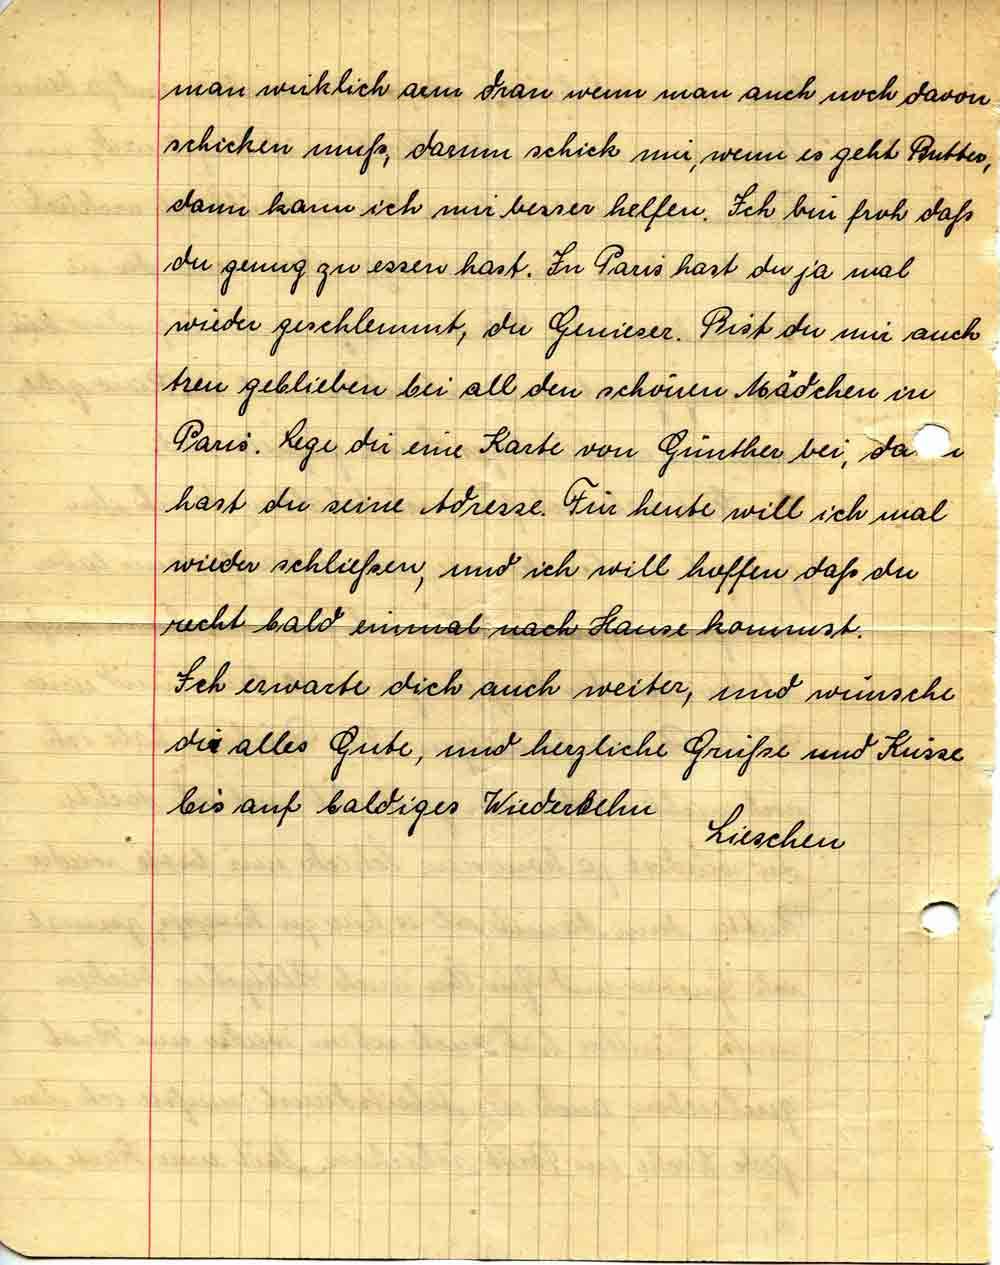 man wirklich arm dran wenn man auch noch davon
schicken muß, darum schick mir, wenn es geht Butter,
dann kann ich mir besser helfen. Ich bin froh daß
du genug zu essen hast. In Paris hast du ja mal
wieder geschlemmt, du Genieser. Bist du mir auch
treu geblieben bei all den schönen Mädchen in
Paris. Lege dir eine Karte von Günther bei,
hast du seine Adresse. Für heute will ich mal
wieder schließen, und ich will hoffen daß du
recht bald einmal nach Hause kommst.
Ich erwarte dich auch weiter, und wünsche
dir alles Gute, und herzliche Grüße und Küsse
bis auf baldiges Wiedersehn
Lieschen